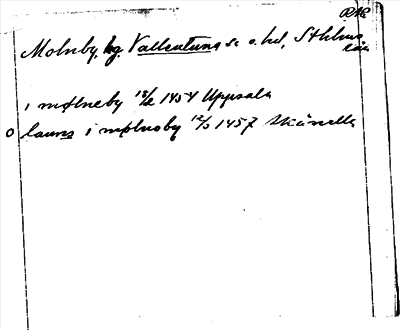 Molnby, hg, Vallentuna sn o. hd, Sthlms
län
i mølneby 18/2 1454 Uppsala
o laurus i mølnoby 12/5 1457 Skånella